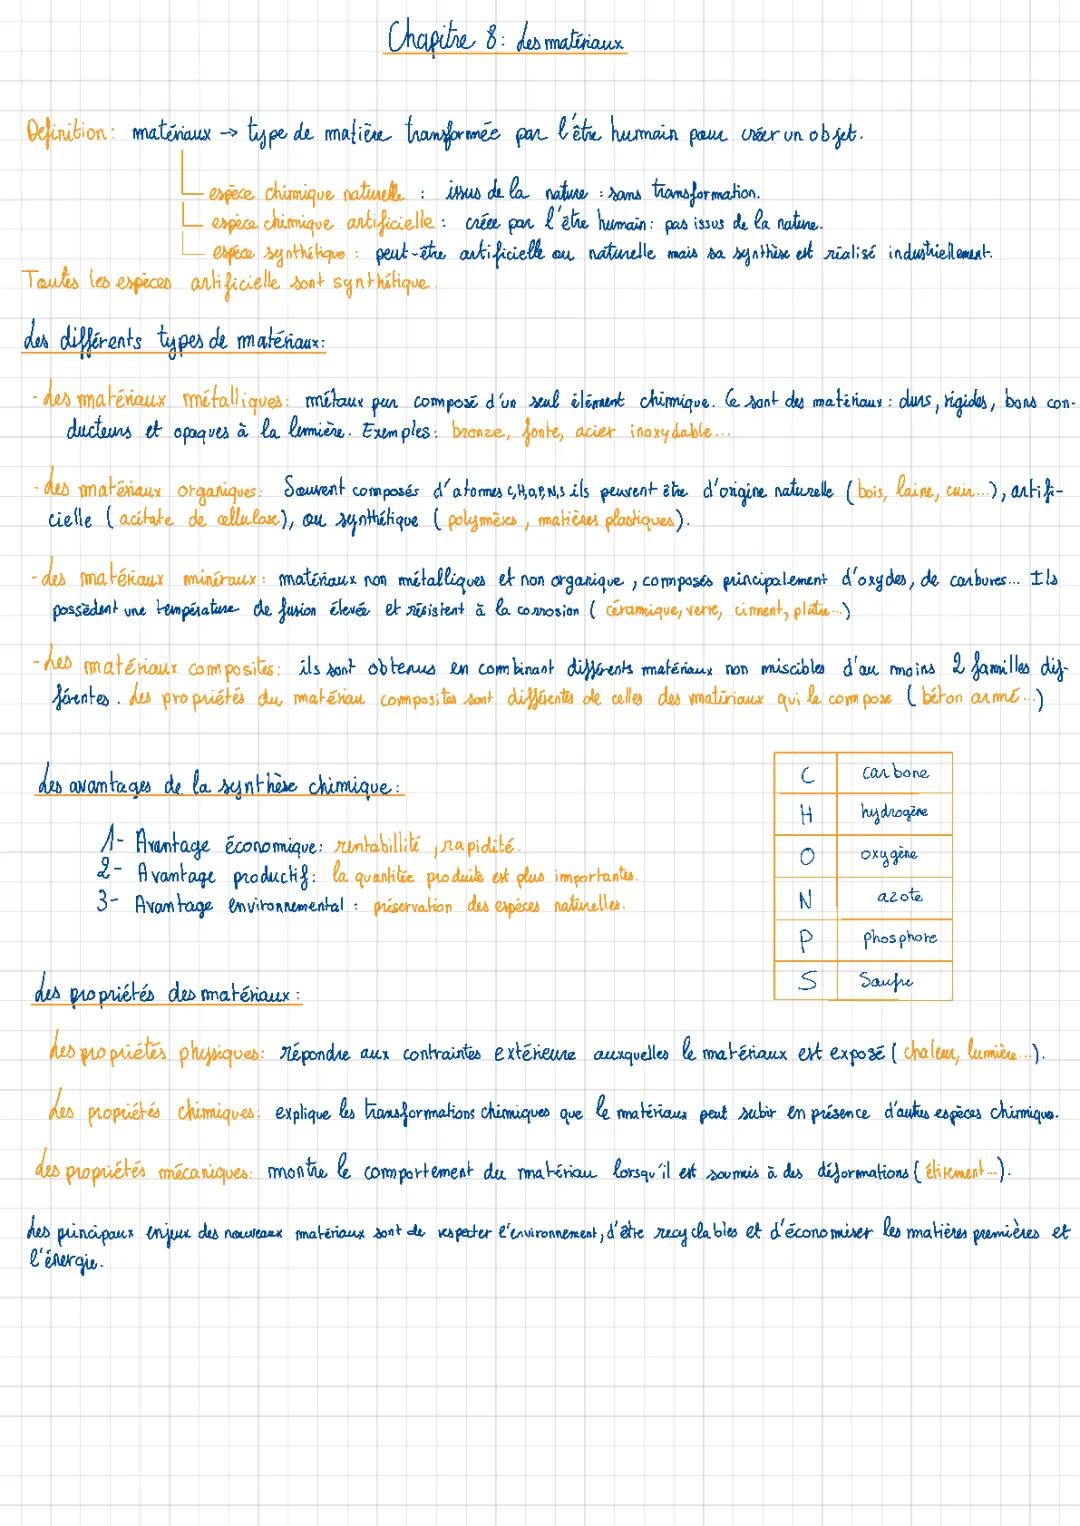 Chapitre 8: Les matériaux
Définition: matériaux → type de matière transformée par l'être humain pour créer un objet.
espèce chimique naturelle : issus de la nature : sans transformation.
espèce chimique artificielle : créée par l'être humain: pas issus de la nature.
espèce synthétique : peut-être artificielle ou naturelle mais sa synthèse est réalisé industriellement.
Toutes les espèces artificielle sont synthétique.
Les différents types de matériaux:
- Les matériaux métalliques: métaux pur composé d'un seul élément chimique. Ce sont des matériaux : durs, rigides, bons con-
ducteurs et opaques à la lumière. Exemples: bronze, fonte, acier inoxydable...
- Les matériaux organiques: Souvent composés d'atomes C,H,O,P,N,S ils peuvent être d'origine naturelle (bois, laine, cuir...), artifi-
cielle (acétate de cellulose), ou synthétique (polymères, matières plastiques).
- Les matériaux minéraux: matériaux non métalliques et non organique, composés principalement d'oxydes, de carbures... Ils
possèdent une température de fusion élevée et résistent à la corrosion (céramique, verre, ciment, plâtre...)
- Les matériaux composites: ils sont obtenus en combinant différents matériaux non miscibles d'au moins 2 familles dif-
férentes. Les propriétés du matériau composites sont différentes de celles des matériaux qui le compose (béton armé...)
Les avantages de la synthèse chimique:
1- Avantage économique: rentabillité, rapidité.
2- Avantage productif: la quantitée produite est plus importantes.
3- Avantage environnemental : préservation des espèces naturelles.
C carbone
H hydrogène
O oxygène
N azote
P phosphore
S Soufre
Les propriétés des matériaux :
Les propriétés physiques: répondre aux contraintes extérieure auxquelles le matériaux est exposé (chaleur, lumière...).
Les propriétés chimiques: explique les transformations chimiques que le matériaux peut subir en présence d'autres espèces chimiques.
Les propriétés mécaniques: montre le comportement du matériau lorsqu'il est soumis à des déformations (étirement...).
Les principaux enjeux des nouveaux matériaux sont de respecter l'environnement, d'être recyclables et d'économiser les matières premières et
l'énergie.